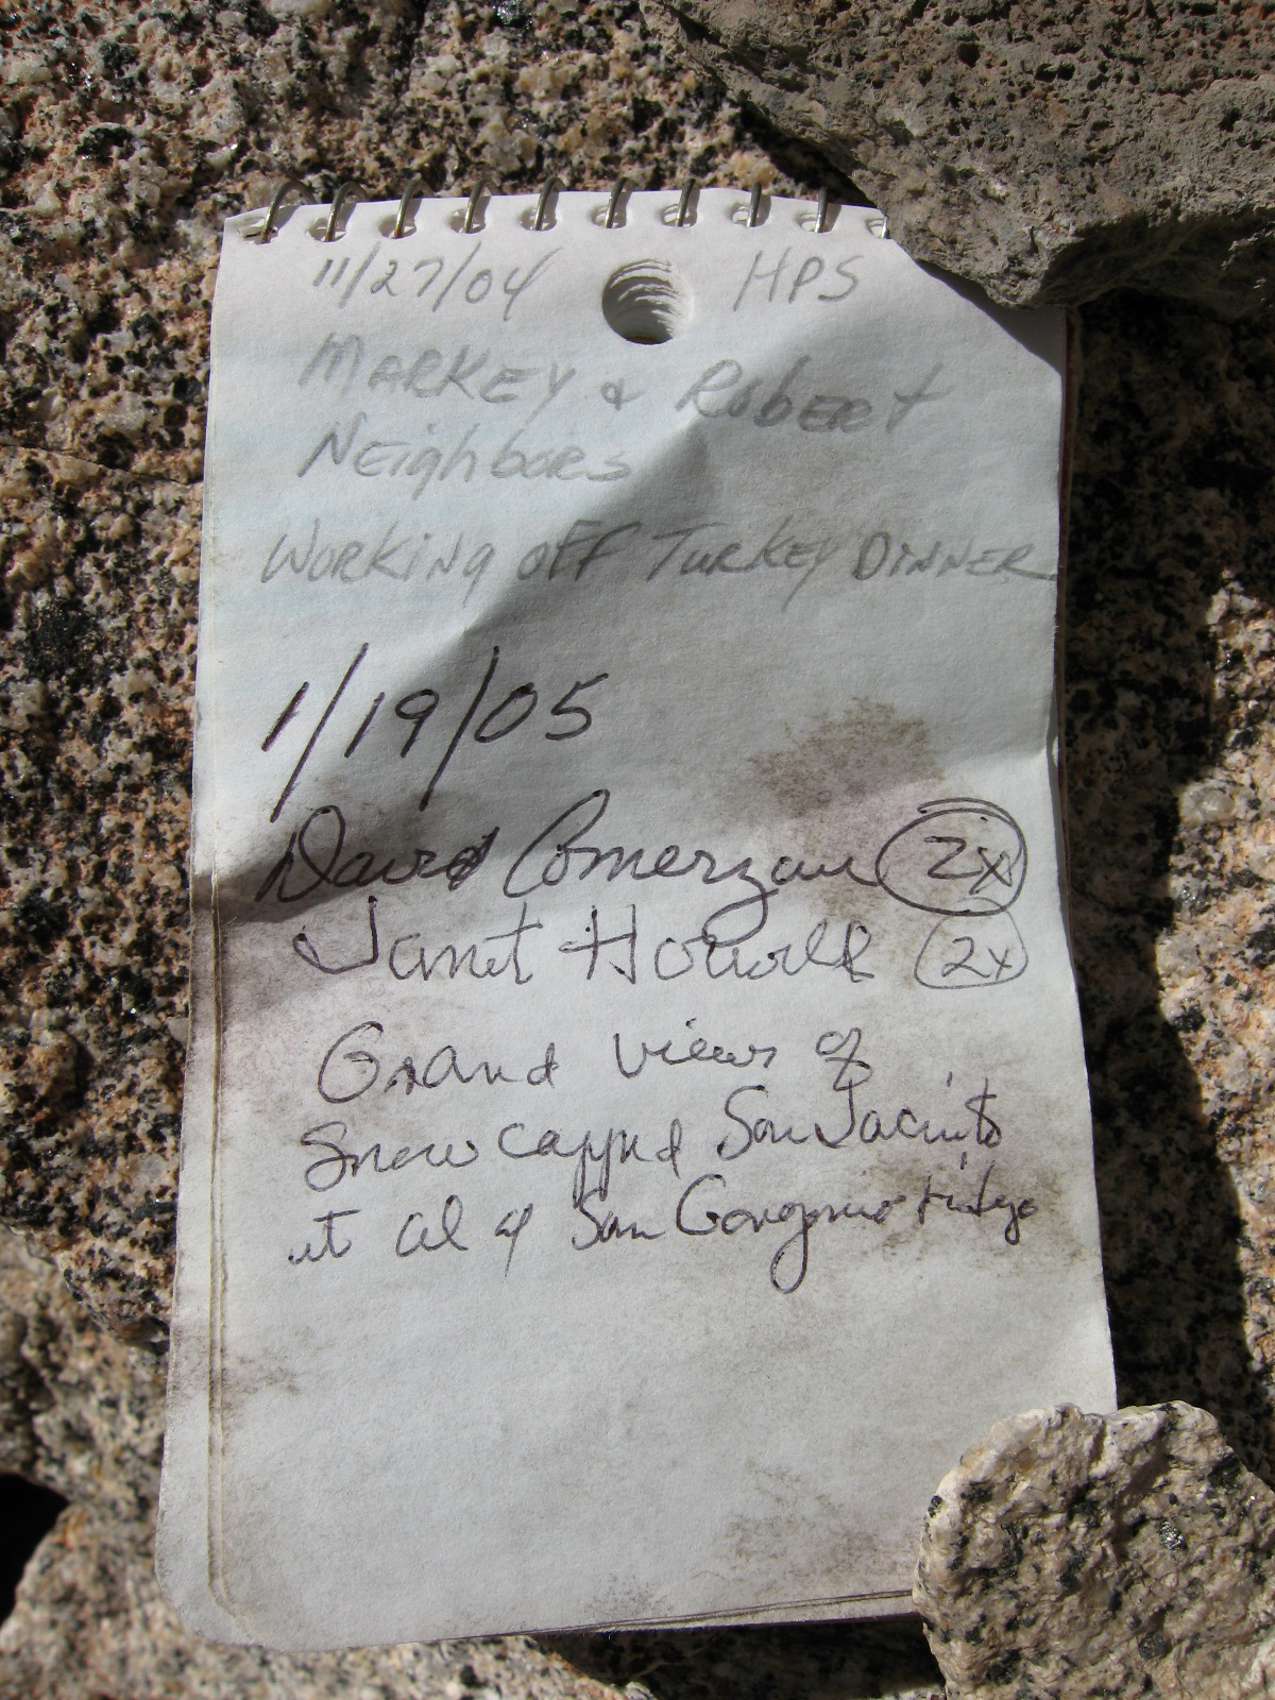 11/27/04 HPS
MARKEY & RobERt
NEighbors
WORKiNg OFF TURKEY DINNER
1/19/05
David Comerzan 2x
Janet Howell 2x
Grand views of
Snow capped San Jacinto
et al of San Gorgonio ridge